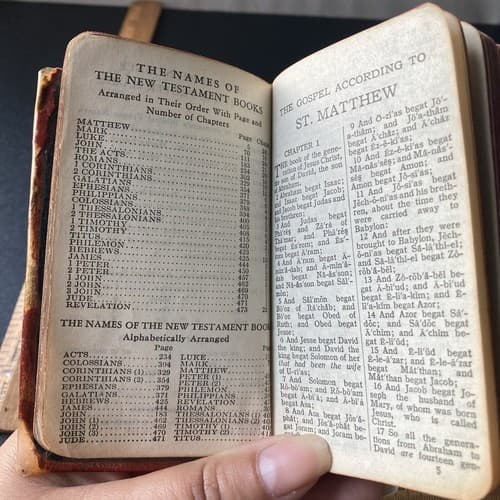 THE NAMES OF
THE NEW TESTAMENT BOOKS
Arranged in Their Order With Page and
Number of Chapters
Page
MATTHEW
MARK
LUKE
JOHN
THE ACTS
ROMANS
1 CORINTHIANS
2 CORINTHIANS
GALATIANS
EPHESIANS
PHILIPPIANS
COLOSSIANS
1 THESSALONIANS
2 THESSALONIANS
1 TIMOTHY
2 TIMOTHY
TITUS
PHILEMON
HEBREWS
JAMES
1 PETER
2 PETER
1 JOHN
2 JOHN
3 JOHN
JUDE
REVELATION
THE NAMES OF THE NEW TESTAMENT BOO
Alphabetically Arranged
Page
ACTS 234
COLOSSIANS 394
CORINTHIANS (1) 329
CORINTHIANS (2) 354
EPHESIANS 379
GALATIANS 371
HEBREWS
JAMES 444
JOHN
JOHN (1)
JOHN (2)
JOHN (3)
JUDE 471
LUKE
MARK
MATTHEW
PETER (1)
PETER (2)
PHILEMON
PHILIPPIANS
REVELATION
ROMANS
THESSALONIANS (1)
THESSALONIANS (2)
TIMOTHY (1)
TIMOTHY (2)
TITUS
THE GOSPEL ACCORDING TO
ST. MATTHEW
CHAPTER 1
THE book of the gene-
ration of Jesus Christ,
the son of David, the son
of Abraham.
2 Abraham begat Isaac;
and Isaac begat Jacob;
and Jacob begat Judas and
his brethren;
3 And Judas begat
Phā'rĕs and Zā'rā of
Thā'mar; and Phā'rĕs
begat Ĕs'rom; and Ĕs'-
rom begat Ā'ram;
4 And Ā'ram begat Ă-
mĭn'ă-dab; and Ă-mĭn'ă-
dab begat Nā-ăs'son;
and Nā-ăs'son begat Săl'-
mŏn;
5 And Săl'mŏn begat
Bō'oz of Rā'chăb; and
Bō'oz begat Obed of
Ruth; and Obed begat
Jesse;
6 And Jesse begat David
the king; and David the
king begat Solomon of her
that had been the wife
of U-rī'as;
7 And Solomon begat
Rō-bō'am; and Rō-bō'am
begat Ā-bī'ā; and Ā-bī'ā
begat Asa;
8 And Asa begat Jŏs'ă-
phăt; and Jŏs'ă-phăt be-
gat Joram; and Joram be-
9 And O-zī'as begat Jō'-
a-thăm; and Jō'a-thăm
begat Ā'chăz; and Ā'chăz
begat Ĕz-ĕ-kī'as;
10 And Ĕz-ĕ-kī'as begat
Mă-năs'sĕs; and Mă-năs'-
sĕs begat Amon; and
Amon begat Jō-sī'as;
11 And Jō-sī'as begat
Jĕch-ō-nī'as and his breth-
ren, about the time they
were carried away to
Babylon:
12 And after they were
brought to Babylon, Jĕch-
ō-nī'as begat Sā-lā'thĭ-el;
and Sā-lā'thĭ-el begat Zō-
rŏb'ă-bĕl;
13 And Zō-rŏb'ă-bĕl be-
gat Ā-bī'ud; and Ā-bī'ud
begat Ē-lī'a-kim; and Ē-
lī'a-kim begat Azor;
14 And Azor begat Sā'-
dŏc; and Sā'dŏc begat
Ā'chim; and Ā'chim be-
gat Ē-lī'ŭd;
15 And Ē-lī'ŭd begat
Ē-le-ā'zar; and Ē-le-ā'zar
begat Măt'than; and
Măt'than begat Jacob;
16 And Jacob begat Jo-
seph the husband of
Mary, of whom was born
Jesus, who is called
Christ.
17 So all the genera-
tions from Abraham to
David are fourteen gen-
5